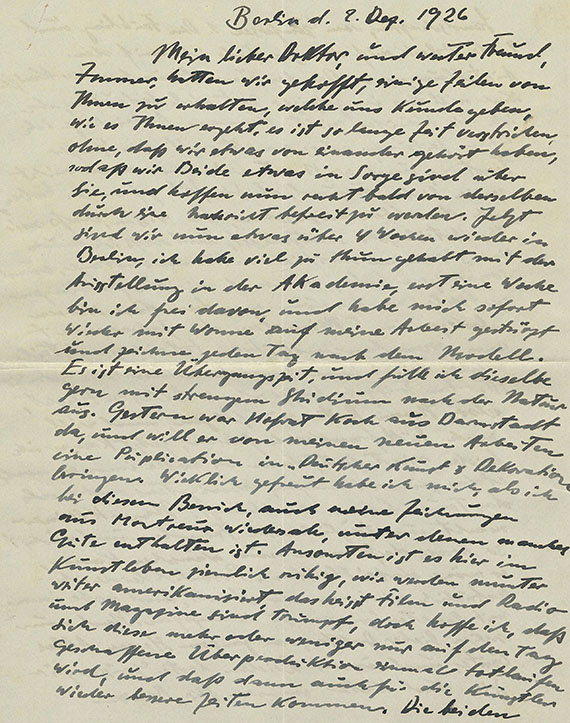 Berlin d. 2. Dez. 1926
Mein lieber Doktor, und werter Freund,
Immer, hatten wir gehofft, einige Zeilen von
Ihnen zu erhalten, welche uns Kunde geben,
wie es Ihnen ergeht, es ist so lange Zeit verstrichen,
ohne, daß wir etwas von einander gehört haben,
sodaß wir Beide etwas in Sorge sind über
Sie, und hoffen nun recht bald von derselben
durch eine Nachricht befreit zu werden. Jetzt
sind wir nun etwas über 4 Wochen wieder in
Berlin, ich habe viel zu thun gehabt mit der
Ausstellung in der Akademie, erst eine Woche
bin ich frei davon, und habe mich sofort
wieder mit Wonne auf meine Arbeit gestürzt
und zeichne jeden Tag nach dem Modell.
Es ist eine Übergangszeit, und fülle ich dieselbe
gern mit strengem Studium nach der Natur
aus. Gestern war Hofrat Koch aus Darmstadt
da, und will er von meinen neuen Arbeiten
eine Püplication in „Deutscher Kunst & Dekoration
bringen. Wirklich gefreut habe ich mich, als ich
bei diesem Besuch, auch meine Zeichnungen
aus Montreux wiedersah, unter denen manches
Gute enthalten ist. Ansonsten ist es hier im
Künstleben ziemlich ruhig, wir werden munter
weiter amerikanisiert, das heisst Film und Radio
und Magazine sind trumpf, doch hoffe ich, daß
sich diese mehr oder weniger nur auf den Tag
geschaffene Überproduktion einmal totlaufen
wird, und daß dann auch für die Künstler
wieder bessere Zeiten kommen. Die beiden